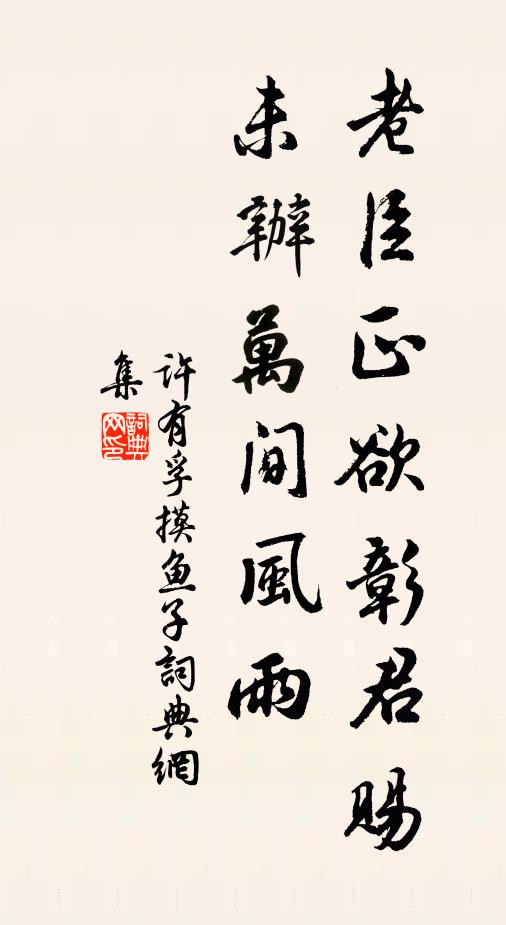 老臣正欲彰君賜
未辦萬間風雨
許有孚摸鱼子詞典網
集
詞典網印